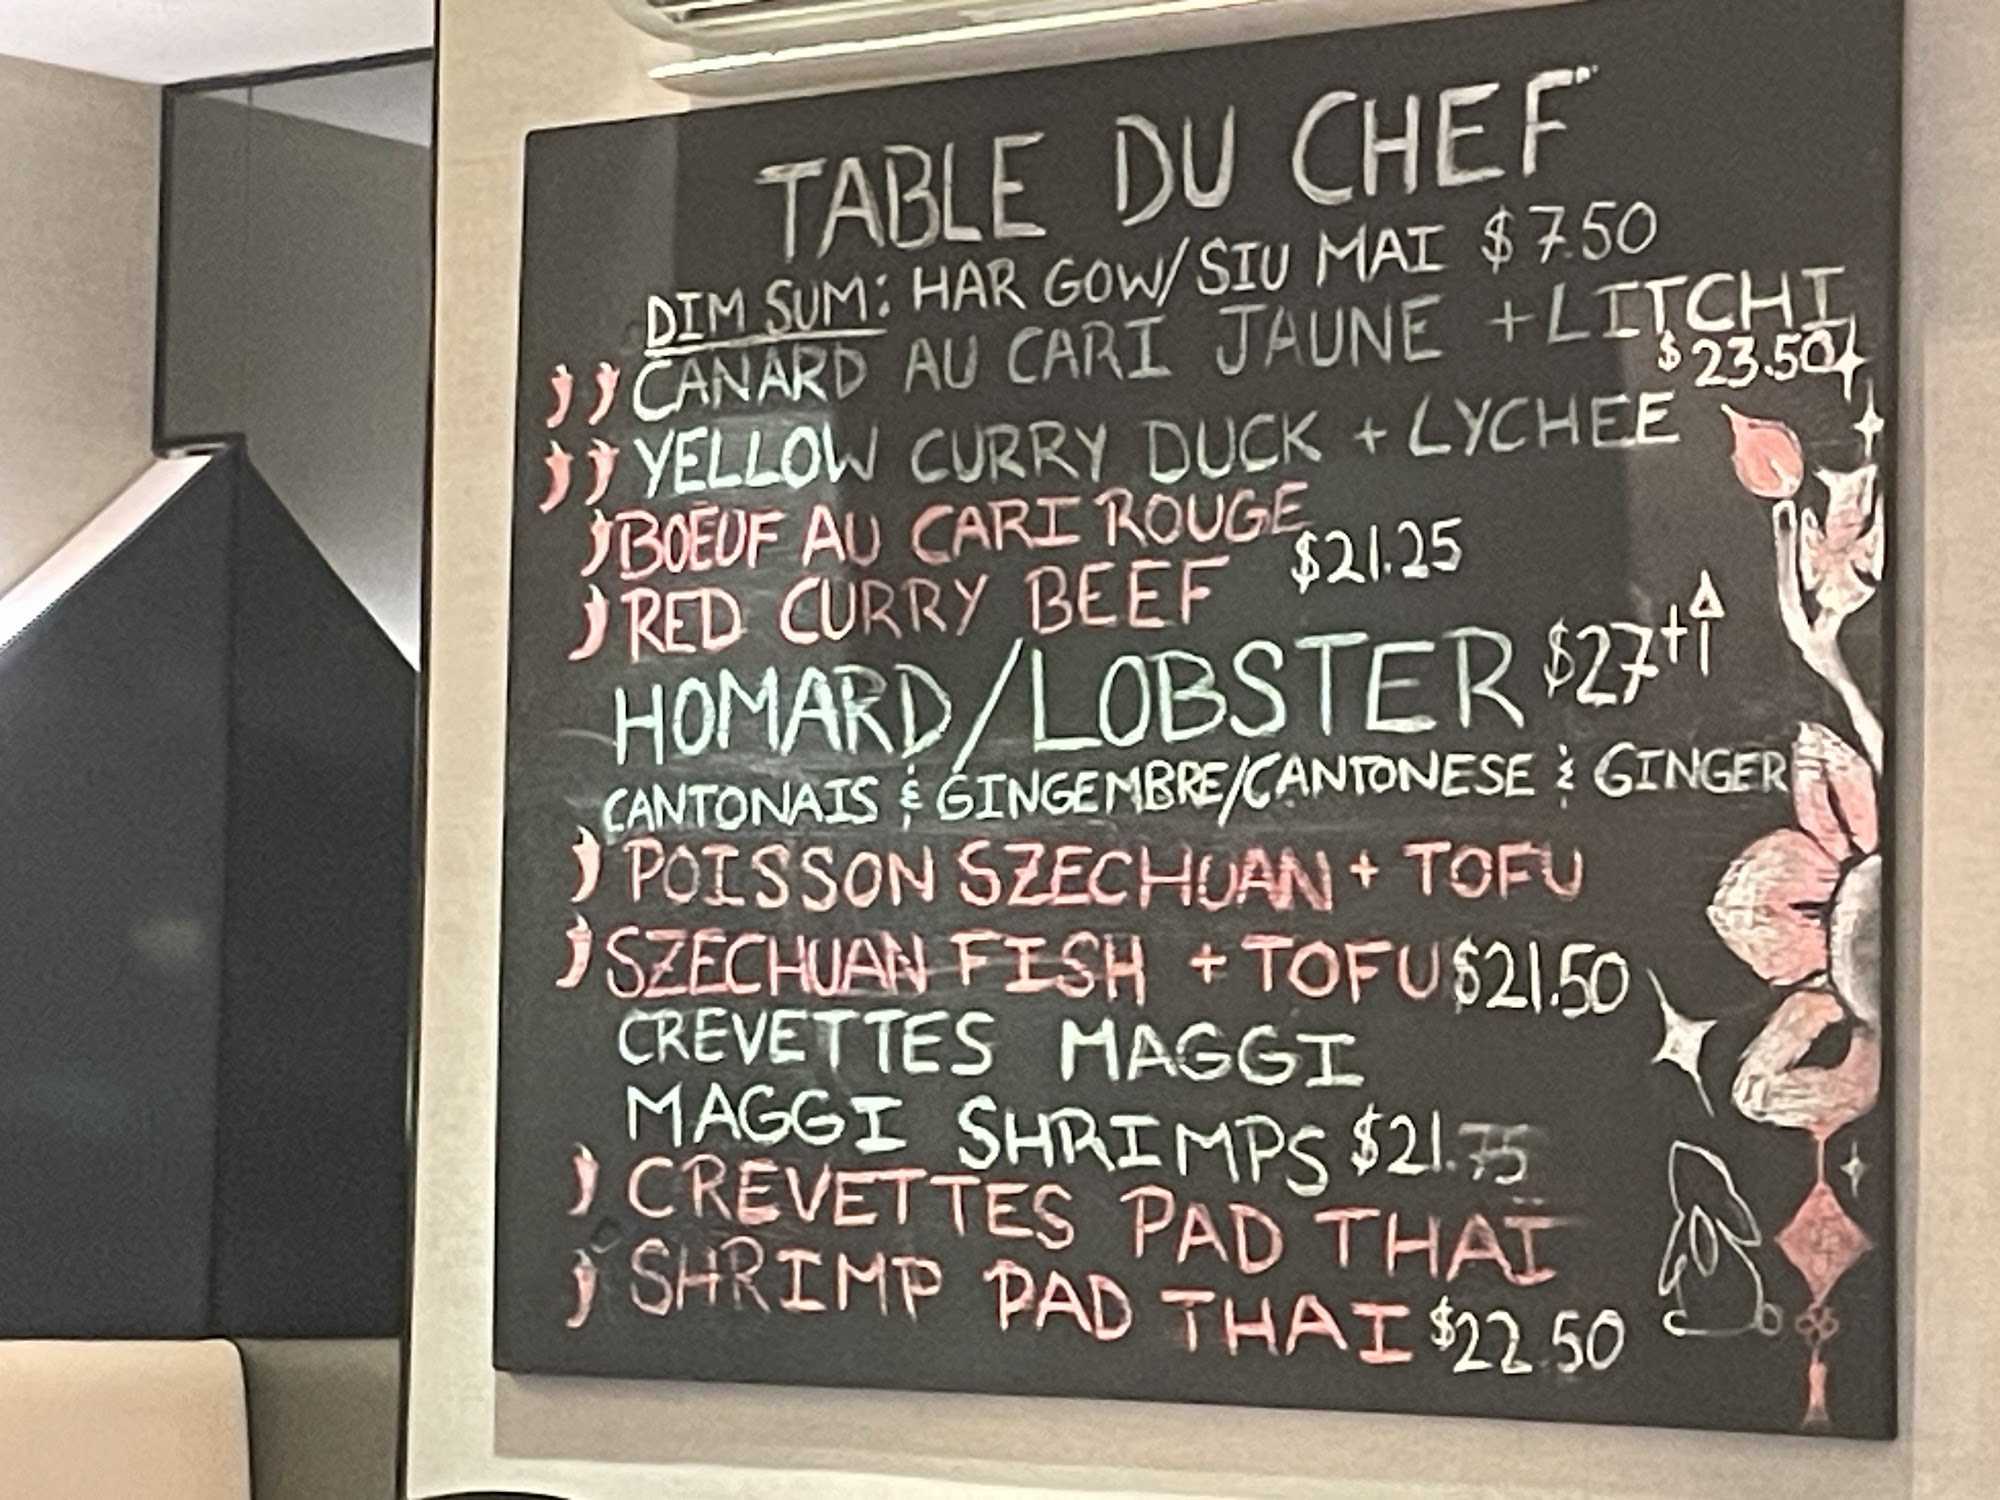 TABLE DU CHEF
DIM SUM: HAR GOW/SIU MAI $7.50
CANARD AU CARI JAUNE + LITCHI
$23.50
YELLOW CURRY DUCK + LYCHEE
BOEUF AU CARI ROUGE
$21.25
RED CURRY BEEF
HOMARD/LOBSTER $27+↑
CANTONAIS & GINGEMBRE/CANTONESE & GINGER
POISSON SZECHUAN + TOFU
SZECHUAN FISH + TOFU $21.50
CREVETTES MAGGI
MAGGI SHRIMPS $21.75
CREVETTES PAD THAI
SHRIMP PAD THAI $22.50